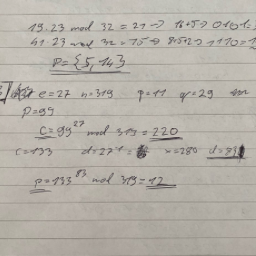 19.23 mod 32 = 21 → 16+5 → 0101
41.23 mod 32 = 15 → 8+5+2 → 1110 = 1
P = {5,14}
e=27 n=319 p=11 q=29
P=99
C = 99^27 mod 319 = 220
C=133 d=27^-1 = x=280 d=83
p=133^83 mod 319 = 12